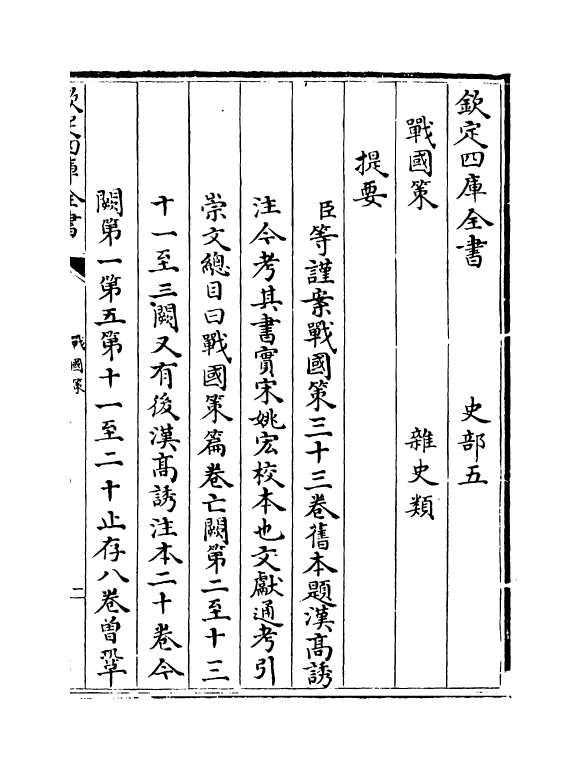 欽定四庫全書 史部五
戰國策 雜史類
提要
臣等謹案戰國策三十三卷舊本題漢髙誘
注今考其書實宋姚宏校本也文獻通考引
崇文總目曰戰國策篇卷亡闕第二至十三
十一至三闕又有後漢髙誘注本二十卷今
闕第一第五第十一至二十止存八卷曾鞏
欽定四庫全書
戰國策
二